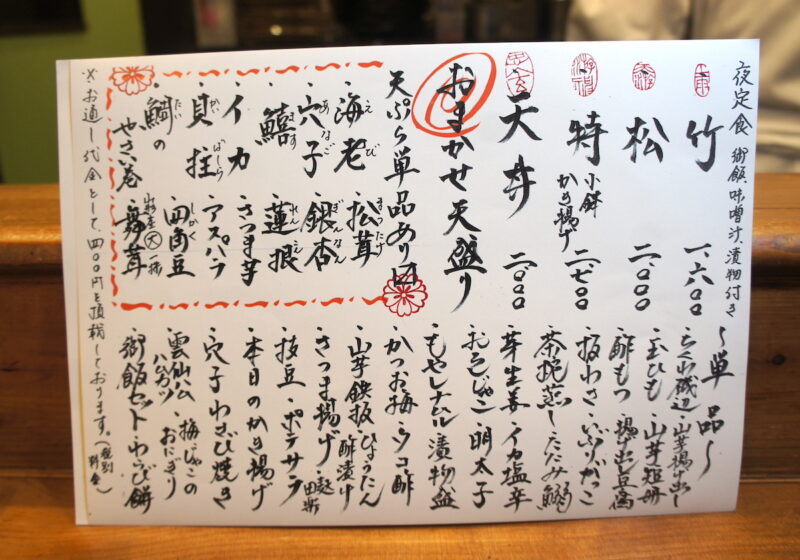 夜定食 御飯、味噌汁、漬物付き
竹 一、六〇〇
松 二、〇〇〇
特 小鉢 かき揚げ 二、七〇〇
天丼 二、〇〇〇
おまかせ天盛り
天ぷら単品あり〼
・海老 えび ・松茸 まつたけ
・穴子 あなご ・銀杏 ぎんなん
・鱚 ・蓮根 れんこん
・イカ ・さつま芋
・貝柱 かいばしら ・アスパラ
・鯛の たい ・四角豆 しかく
やさい巻 ・舞茸
〜単品〜
・ちくわ磯辺 ・山芋揚げ出し
・玉ひも ・山芋短冊
・酢もつ ・揚げ出し豆腐
・板わさ ・いぶりがっこ
・茶碗蒸し ・たたみ鰯
・芽生姜 ・イカ塩辛
・おろしじゃこ ・明太子
・もやしナムル ・漬物盛
・かつお梅 ・ウコ酢
・山芋鉄板 ・ひょうたん酢漬け
・さつま揚げ ・麩田楽
・枝豆 ・ポテサラ
・本日のかき揚げ
・穴子わさび焼き
・雲仙ハムカツ ・梅・じゃこのおにぎり
・御飯セット ・わらび餅
※お通し代金として、四〇〇円を頂戴しております。(税別料金)